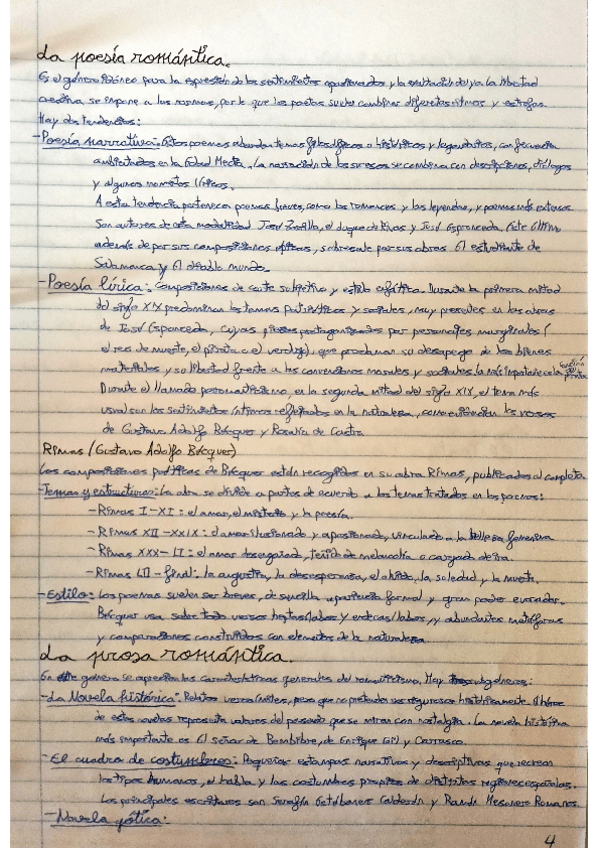 La poesía romántica.
Es el género idóneo para la expresión de los sentimientos apasionados y la exaltación del yo. La libertad
creativa se impone a las normas, por lo que los poetas suelen combinar diferentes ritmos y estrofas.
Hay dos tendencias:
-Poesía narrativa: Estos poemas abordan temas filosóficos o históricos y legendarios, con frecuencia
ambientados en la Edad Media. La narración de los sucesos se combina con descripciones, diálogos
y algunos momentos líricos.
A esta tendencia pertenecen poemas breves, como los romances y las leyendas, y poemas más extensos.
Son autores de esta modalidad José Zorrilla, el duque de Rivas y José Espronceda. Este último
además de por sus composiciones líricas, sobresale por sus obras El estudiante de
Salamanca y El diablo mundo.
-Poesía lírica: Composiciones de corte subjetivo y estilo enfático. Durante la primera mitad
del siglo XIX predominan los temas patrióticos y sociales, muy presentes en las obras
de José Espronceda, cuyas piezas protagonizadas por personajes marginales (
el reo de muerte, el pirata o el verdugo) que proclaman su desapego de los bienes
materiales y su libertad frente a las convenciones morales y sociales. La más importante es la canción del pirata
Durante el llamado posromanticismo, en la segunda mitad del siglo XIX, el tema más
usual son los sentimientos íntimos reflejados en la naturaleza, como evidencian los versos
de Gustavo Adolfo Bécquer y Rosalía de Castro
Rimas (Gustavo Adolfo Bécquer)
Las composiciones poéticas de Bécquer están recogidas en su obra Rimas, publicadas al completo.
-Temas y estructuras: La obra se divide 4 partes de acuerdo a los temas tratados en los poemas:
-Rimas I-XI: el amor, el misterio y la poesía.
-Rimas XII-XXIX: el amor ilusionado y apasionado, vinculado a la belleza femenina
-Rimas XXX-LI: el amor desengañado, teñido de melancolía o cargado de ira.
-Rimas LII-final: la angustia, la desesperanza, el olvido, la soledad y la muerte.
-Estilo: Los poemas suelen ser breves, de sencilla apariencia formal y gran poder evocador.
Bécquer usa sobre todo versos heptasílabos y endecasílabos, y abundantes metáforas
y comparaciones construidas con elementos de la naturaleza
La prosa romántica.
En este género se aprecian las características generales del romanticismo. Hay subgéneros:
-La Novela histórica: Relatos verosímiles, pero que no pretenden ser rigurosos históricamente. El héroe
de estas novelas representa valores del pasado que se miran con nostalgia. La novela histórica
más importante es El señor de Bembibre, de Enrique Gil y Carrasco.
-El cuadro de costumbres: Pequeñas estampas narrativas y descriptivas que recrean
los tipos humanos, el habla y las costumbres propias de distintas regiones españolas.
Los principales escritores son Serafín Estébanez Calderón y Ramón Mesonero Romanos.
-Novela gótica:
4